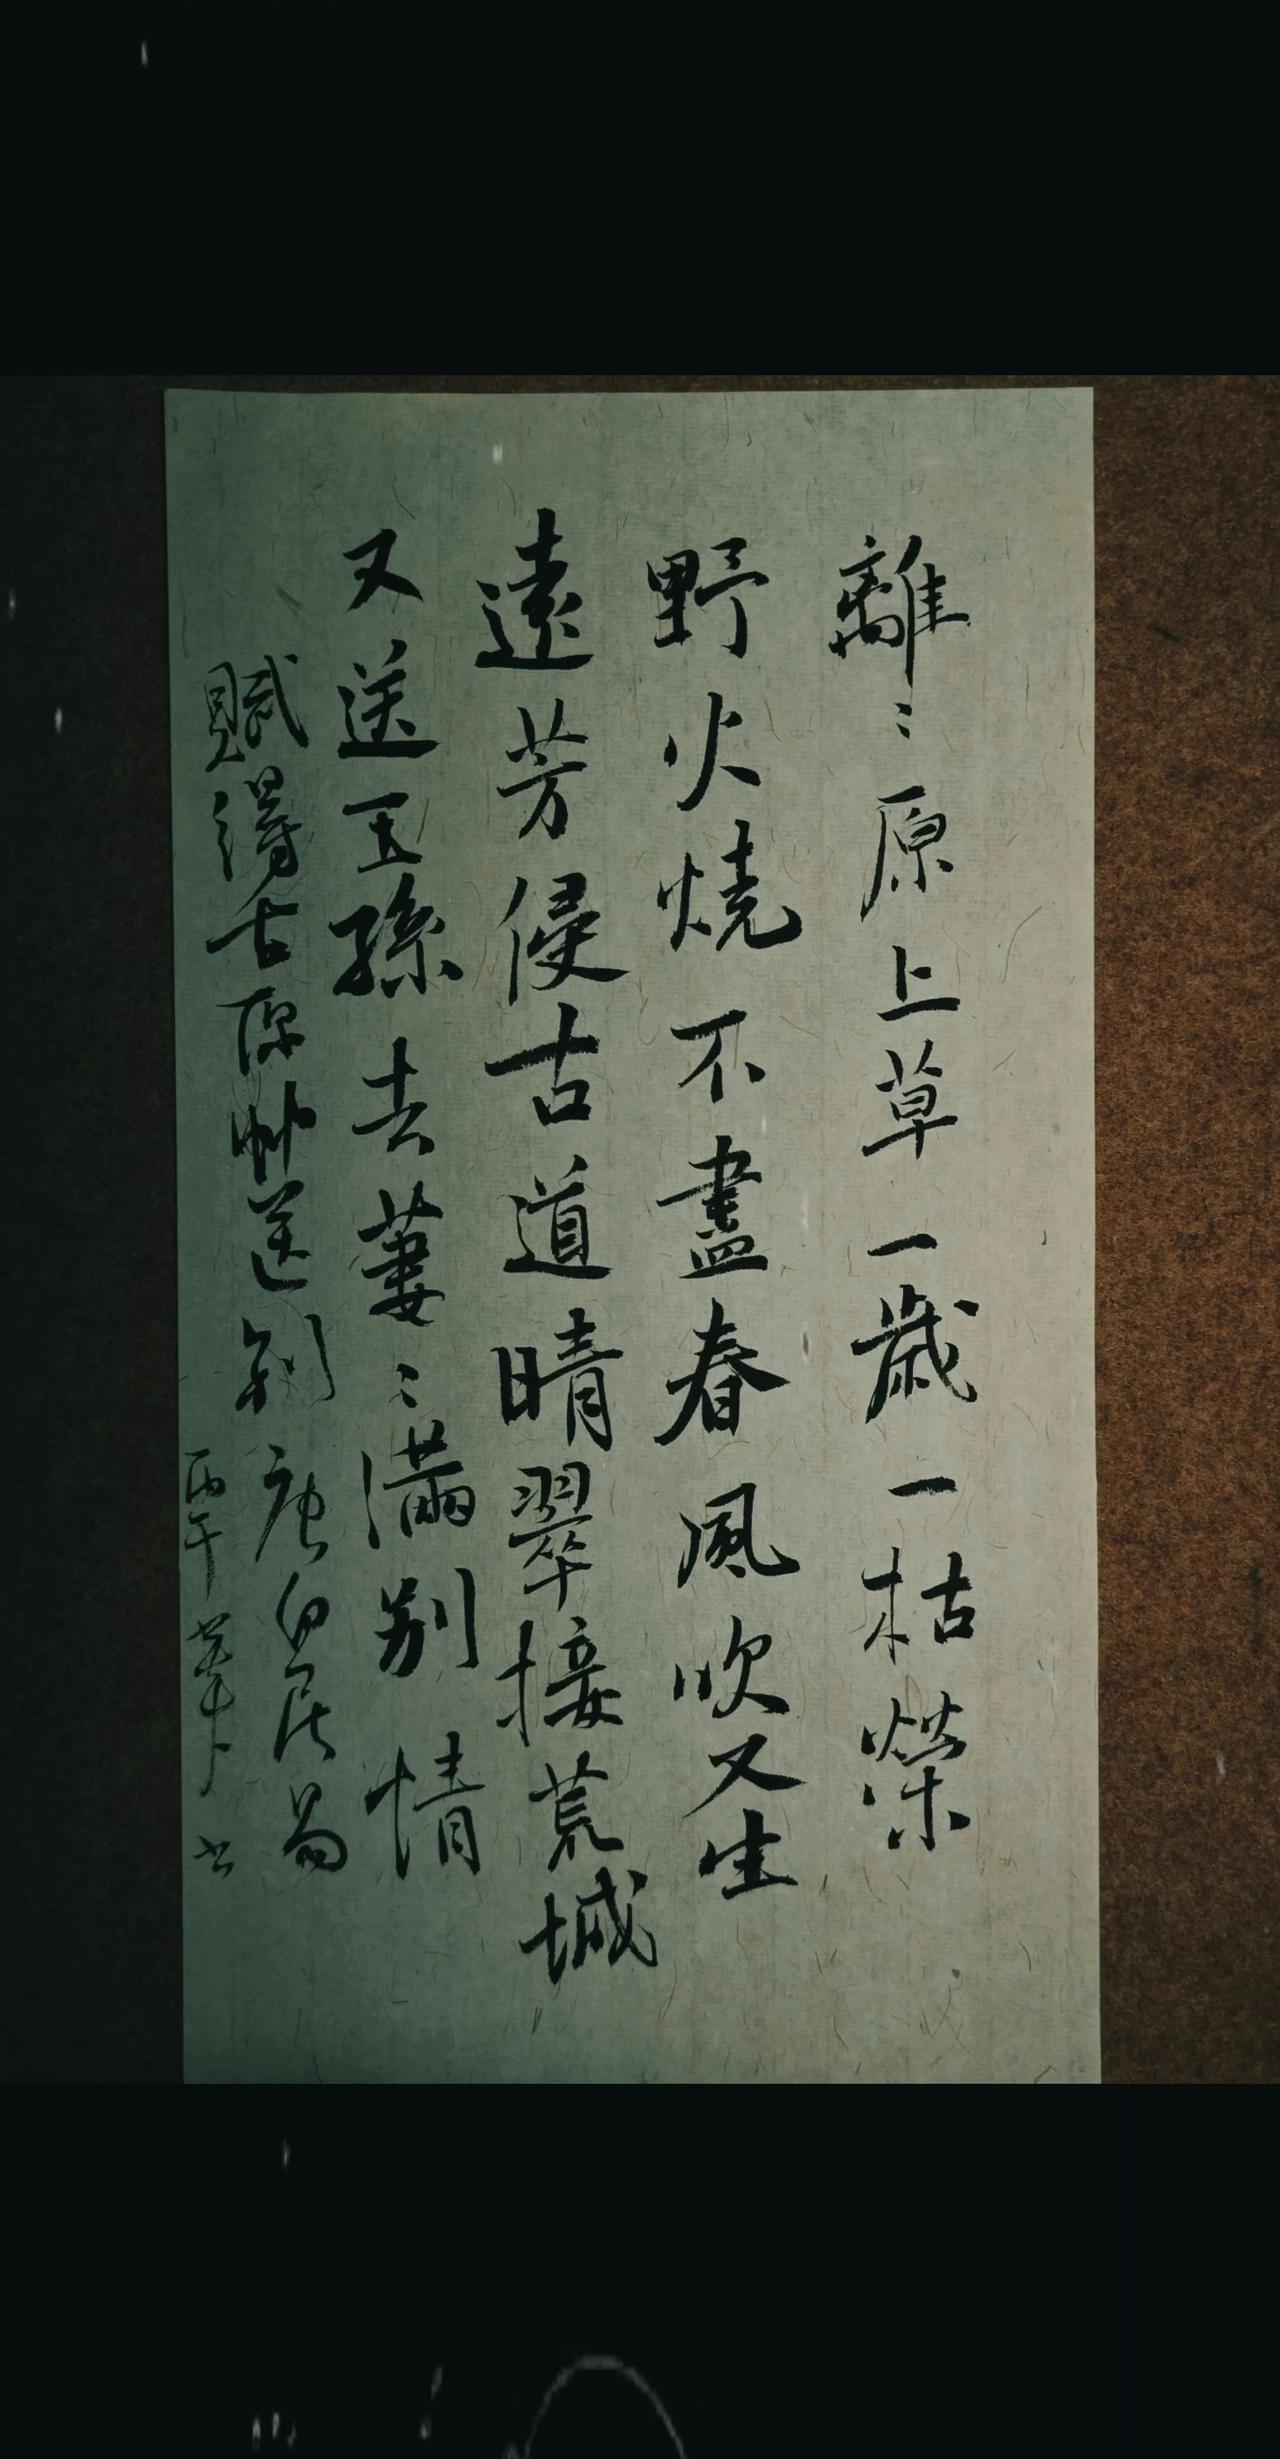 離〻原上草一歲一枯榮
野火燒不盡春風吹又生
遠芳侵古道晴翠接荒城
又送王孫去萋〻滿別情
賦得古原艸送别 唐白居易
丙午 書